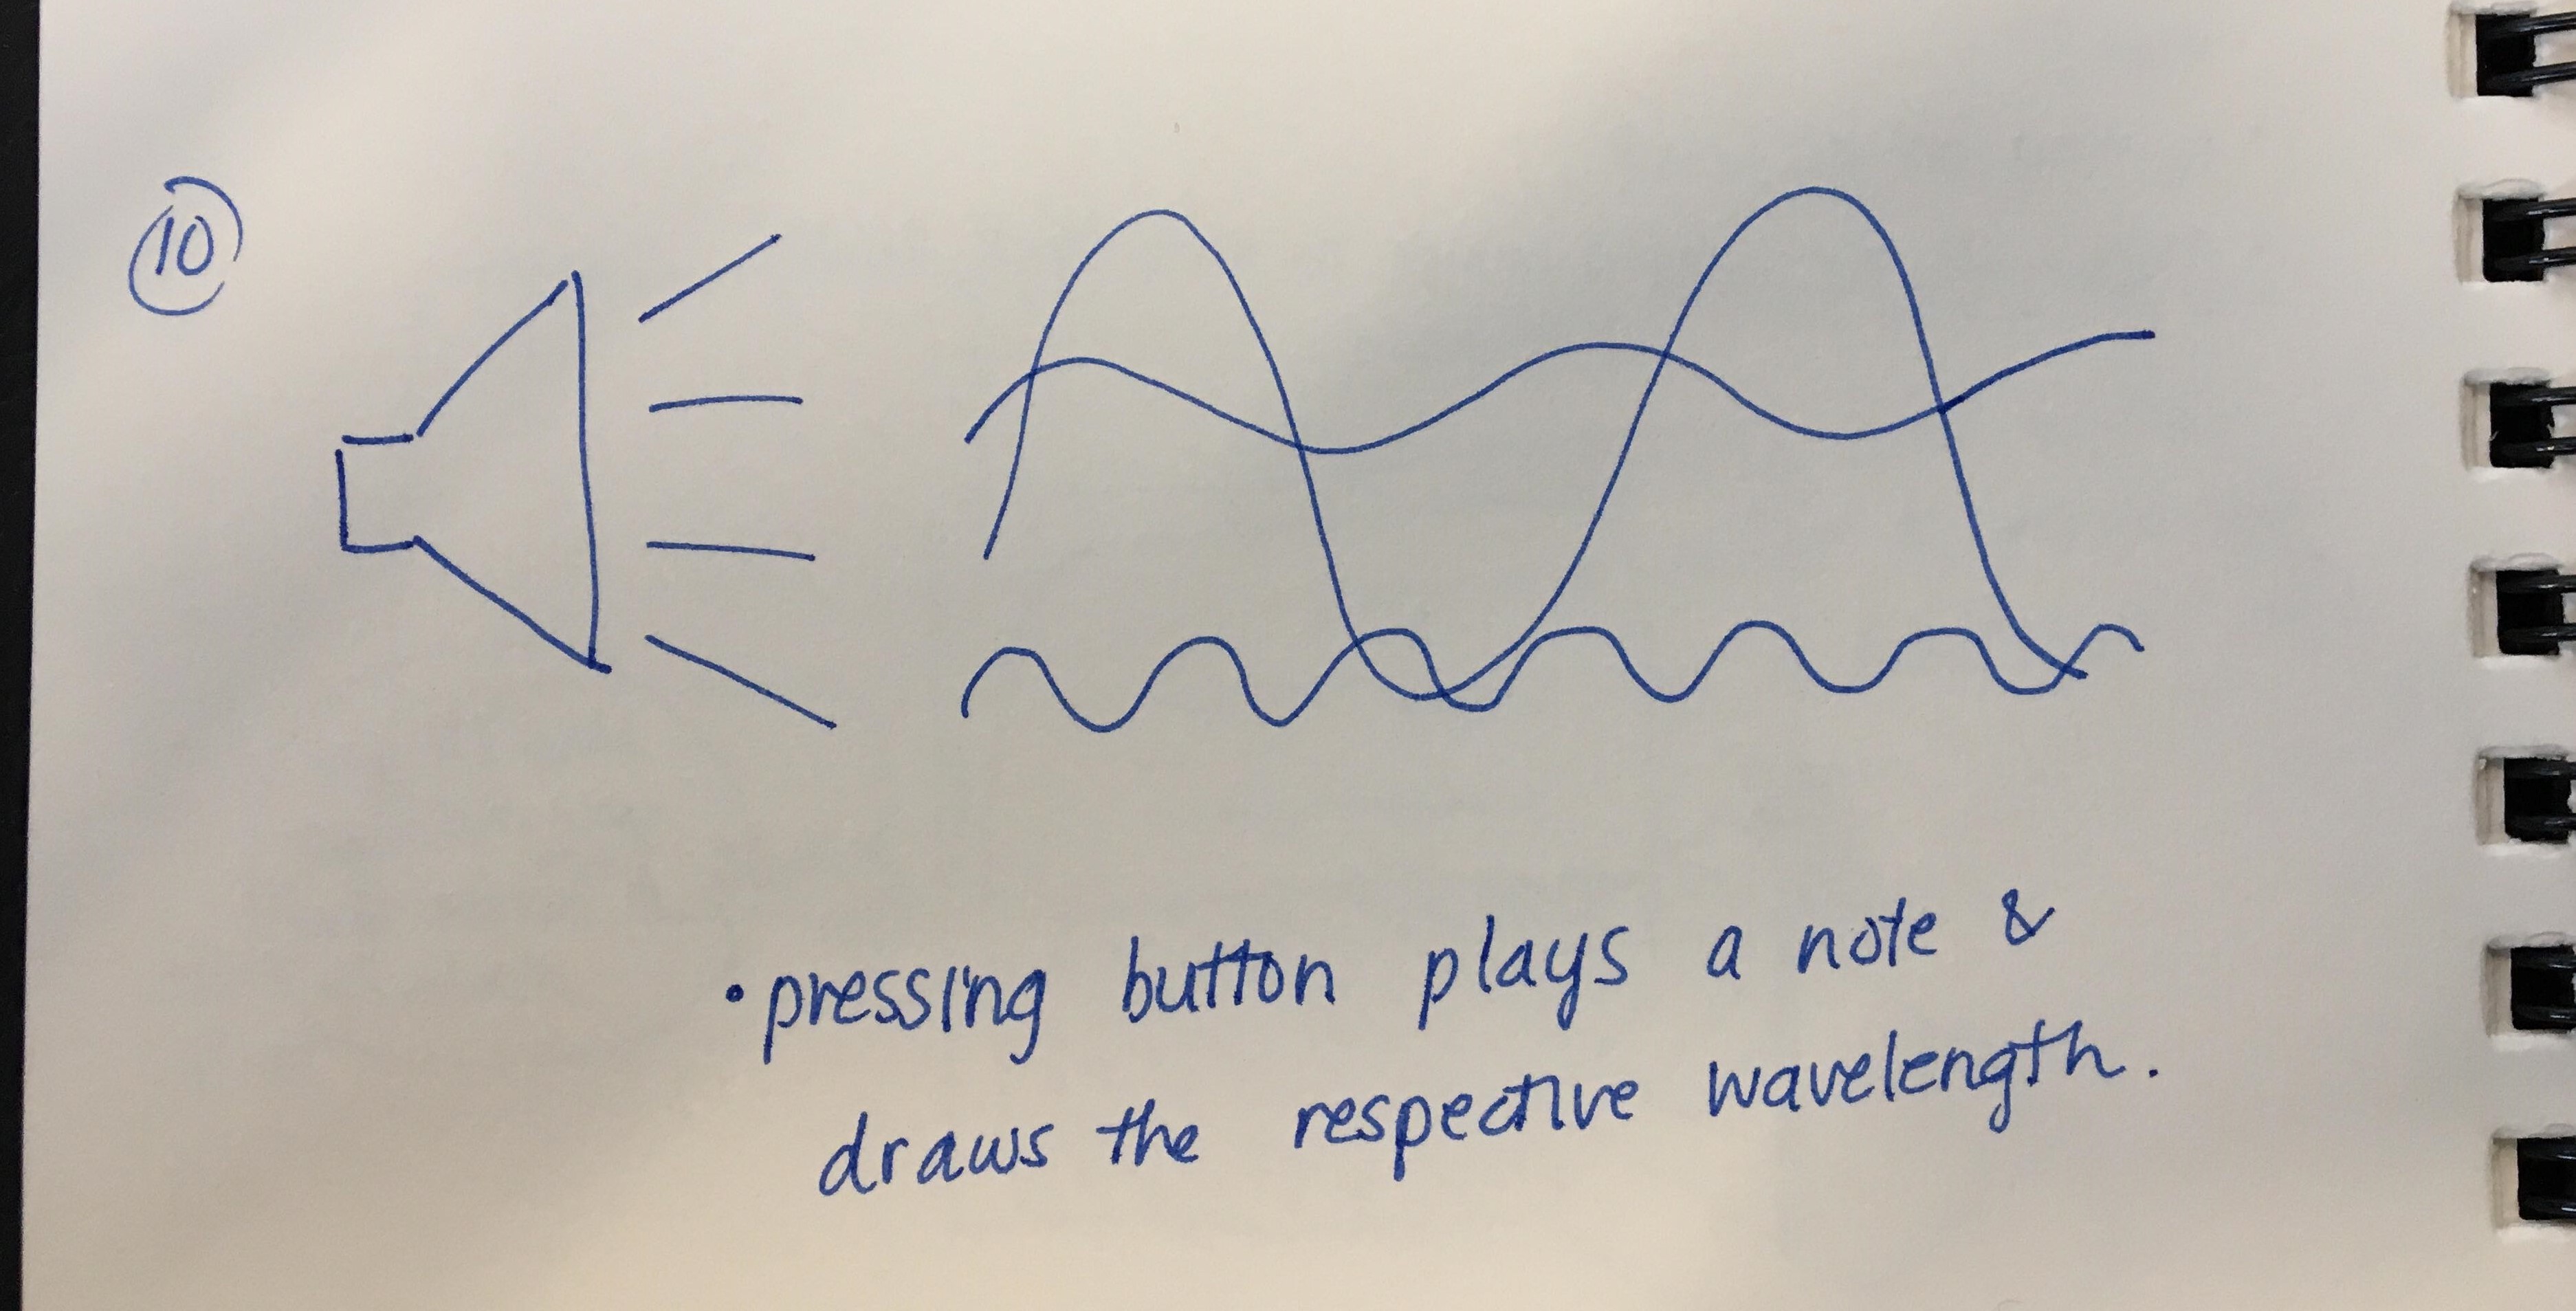 10
• pressing button plays a note &
draws the respective wavelength.